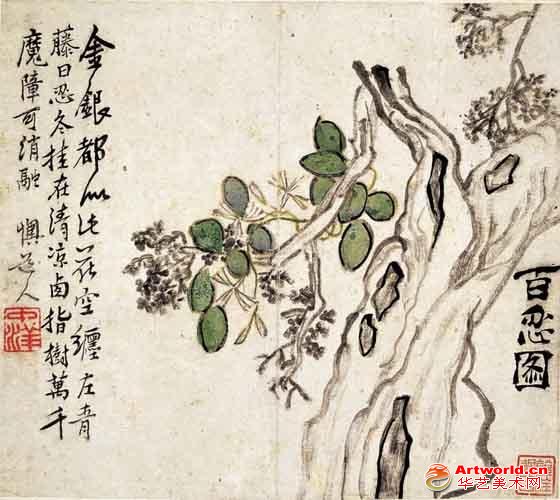 金銀都似此花空纏左青
藤曰忍冬挂在清凉卤指樹萬千
魔障可消融 懊道人
中洋
百忍图
Artworld.cn
华艺美术网